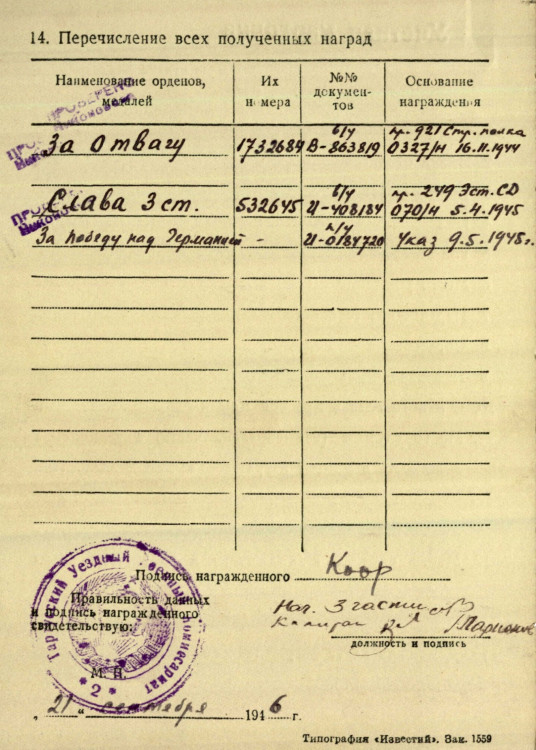 14. Перечисление всех полученных наград
Наименование орденов, медалей
Их номера
№№ документов
Основание награждения
ПРОВЕРЕНО
За Отвагу 1732684 в/у В-863819 пр. 921 Стр. полка 0327/н 16.11.1944
Слава 3 ст. 532645 в/у И-408184 пр. 249 Эст. СД 070/н 5.4.1945
За победу над Германией - И-0184720 Указ 9.5.1945г.
Подпись награжденного Коор
Правильность данных
и подпись награжденного
свидетельствую:
Нач. 3 части
Капитан
должность и подпись
М. П.
Уездный Военный Комиссариат
* 2 *
„21" сентября 1946 г.
Типография «Известий». Зак. 1559